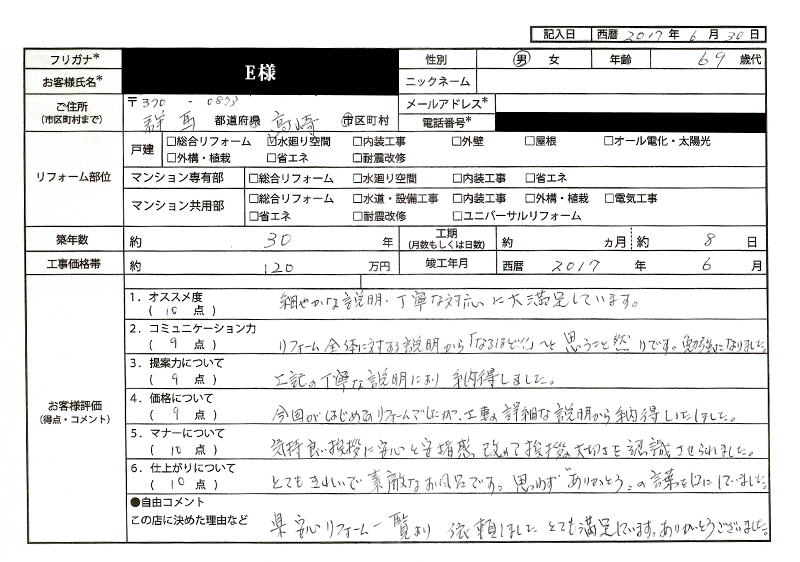 記入日 西暦 2017 年 6 月 30 日
フリガナ* E様 性別 男 女 年齢 69 歳代
お客様氏名* ニックネーム
ご住所 〒370 - 0853 メールアドレス*
(市区町村まで) 群馬 都道府県 高崎 市区町村 電話番号*
リフォーム部位
戸建 □総合リフォーム ☑水廻り空間 □内装工事 □外壁 □屋根 □オール電化・太陽光
□外構・植栽 □省エネ □耐震改修
マンション専有部 □総合リフォーム □水廻り空間 □内装工事 □省エネ
マンション共用部 □総合リフォーム □水道・設備工事 □内装工事 □外構・植栽 □電気工事
□省エネ □耐震改修 □ユニバーサルリフォーム
築年数 約 30 年 工期 (月数もしくは日数) 約 ヵ月 約 8 日
工事価格帯 約 120 万円 竣工年月 西暦 2017 年 6 月
お客様評価
(得点・コメント)
1．オススメ度
( 10 点 ) 細やかな説明、丁寧な対応に大満足しています。
2．コミュニケーション力
( 9 点 ) リフォーム全体に対する説明から「なるほど!!」と思うこと然りです。勉強になりました。
3．提案力について
( 9 点 ) 上記の丁寧な説明により納得しました。
4．価格について
( 9 点 ) 今回がはじめてのリフォームでしたが、工事の詳細な説明から納得いたしました。
5．マナーについて
( 10 点 ) 気持良い挨拶に安心と安堵感 改めて挨拶の大切さを認識させられました。
6．仕上がりについて
( 10 点 ) とてもきれいで素敵なお風呂です。思わず"ありがとう"の言葉を口にしていました。
●自由コメント
この店に決めた理由など 県安心リフォーム一覧より 依頼しました とても満足しています。ありがとうございました。